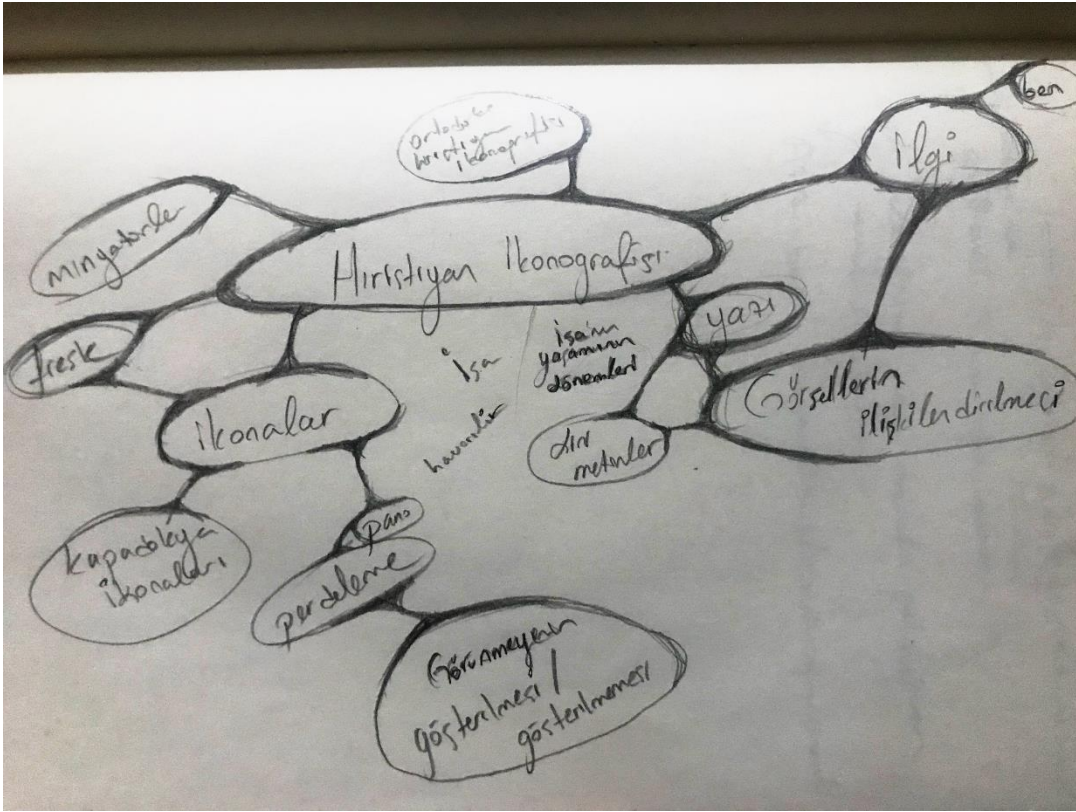 ben
İlgi
Ortodoks
hıristiyan
ikonografisi
minyatürler
Hıristiyan İkonografisi
fresk
yazı
İsa
İsa'nın
yaşamının
dönemleri
Görsellerin
ilişkilendirilmesi
ikonalar
havariler
din
metinler
Kapadokya
ikonaları
pano
perdeleme
Görünmeyenin
gösterilmesi /
gösterilmemesi